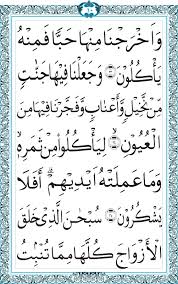 وَاَخْرَجْنَا مِنْهَا حَبًّا فَمِنْهُ
يَاْكُلُوْنَ ﴿۳۳﴾ وَجَعَلْنَا فِيْهَا جَنّٰتٍ
مِّنْ نَّخِيْلٍ وَّاَعْنَابٍ وَّفَجَّرْنَا فِيْهَا مِنَ
الْعُيُوْنِ ﴿۳۴﴾ لِيَاْكُلُوْا مِنْ ثَمَرِهٖ
وَمَا عَمِلَتْهُ اَيْدِيْهِمْ اَفَلَا
يَشْكُرُوْنَ ﴿۳۵﴾ سُبْحٰنَ الَّذِيْ خَلَقَ
الْاَزْوَاجَ كُلَّهَا مِمَّا تُنْۢبِتُ